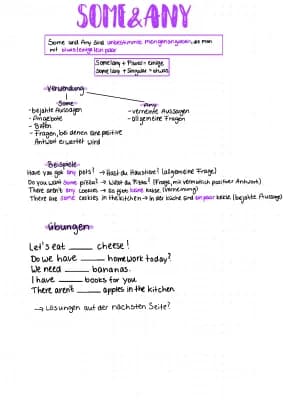 SOME & ANY
Some und Any sind unbestimmte Mengenangaben, die man
mit etwas/einige/ein paar
Some/any + Plural = einige
Some/any + Singular = etwas
Verwendung
Some
- bejahte Aussagen
- Angebote
- Bitten
- Fragen, bei denen eine positive
Antwort erwartet wird
Any
- verneinte Aussagen
- allgemeine Fragen
Beispiele
Have you got any pets? → Hast du Haustiere? (allgemeine Frage)
Do you want some pizza? → Willst du Pizza? (Frage, mit vermutlich positiver Antwort)
There aren't any cookies → Es gibt keine Kekse (Verneinung)
There are some cookies in the kitchen → In der Küche sind ein paar Kekse (bejahte Aussage)
Übungen
Let's eat ____ cheese!
Do we have ____ homework today?
We need ____ bananas.
I have ____ books for you.
There aren't ____ apples in the kitchen.
→ Lösungen auf der nächsten Seite!